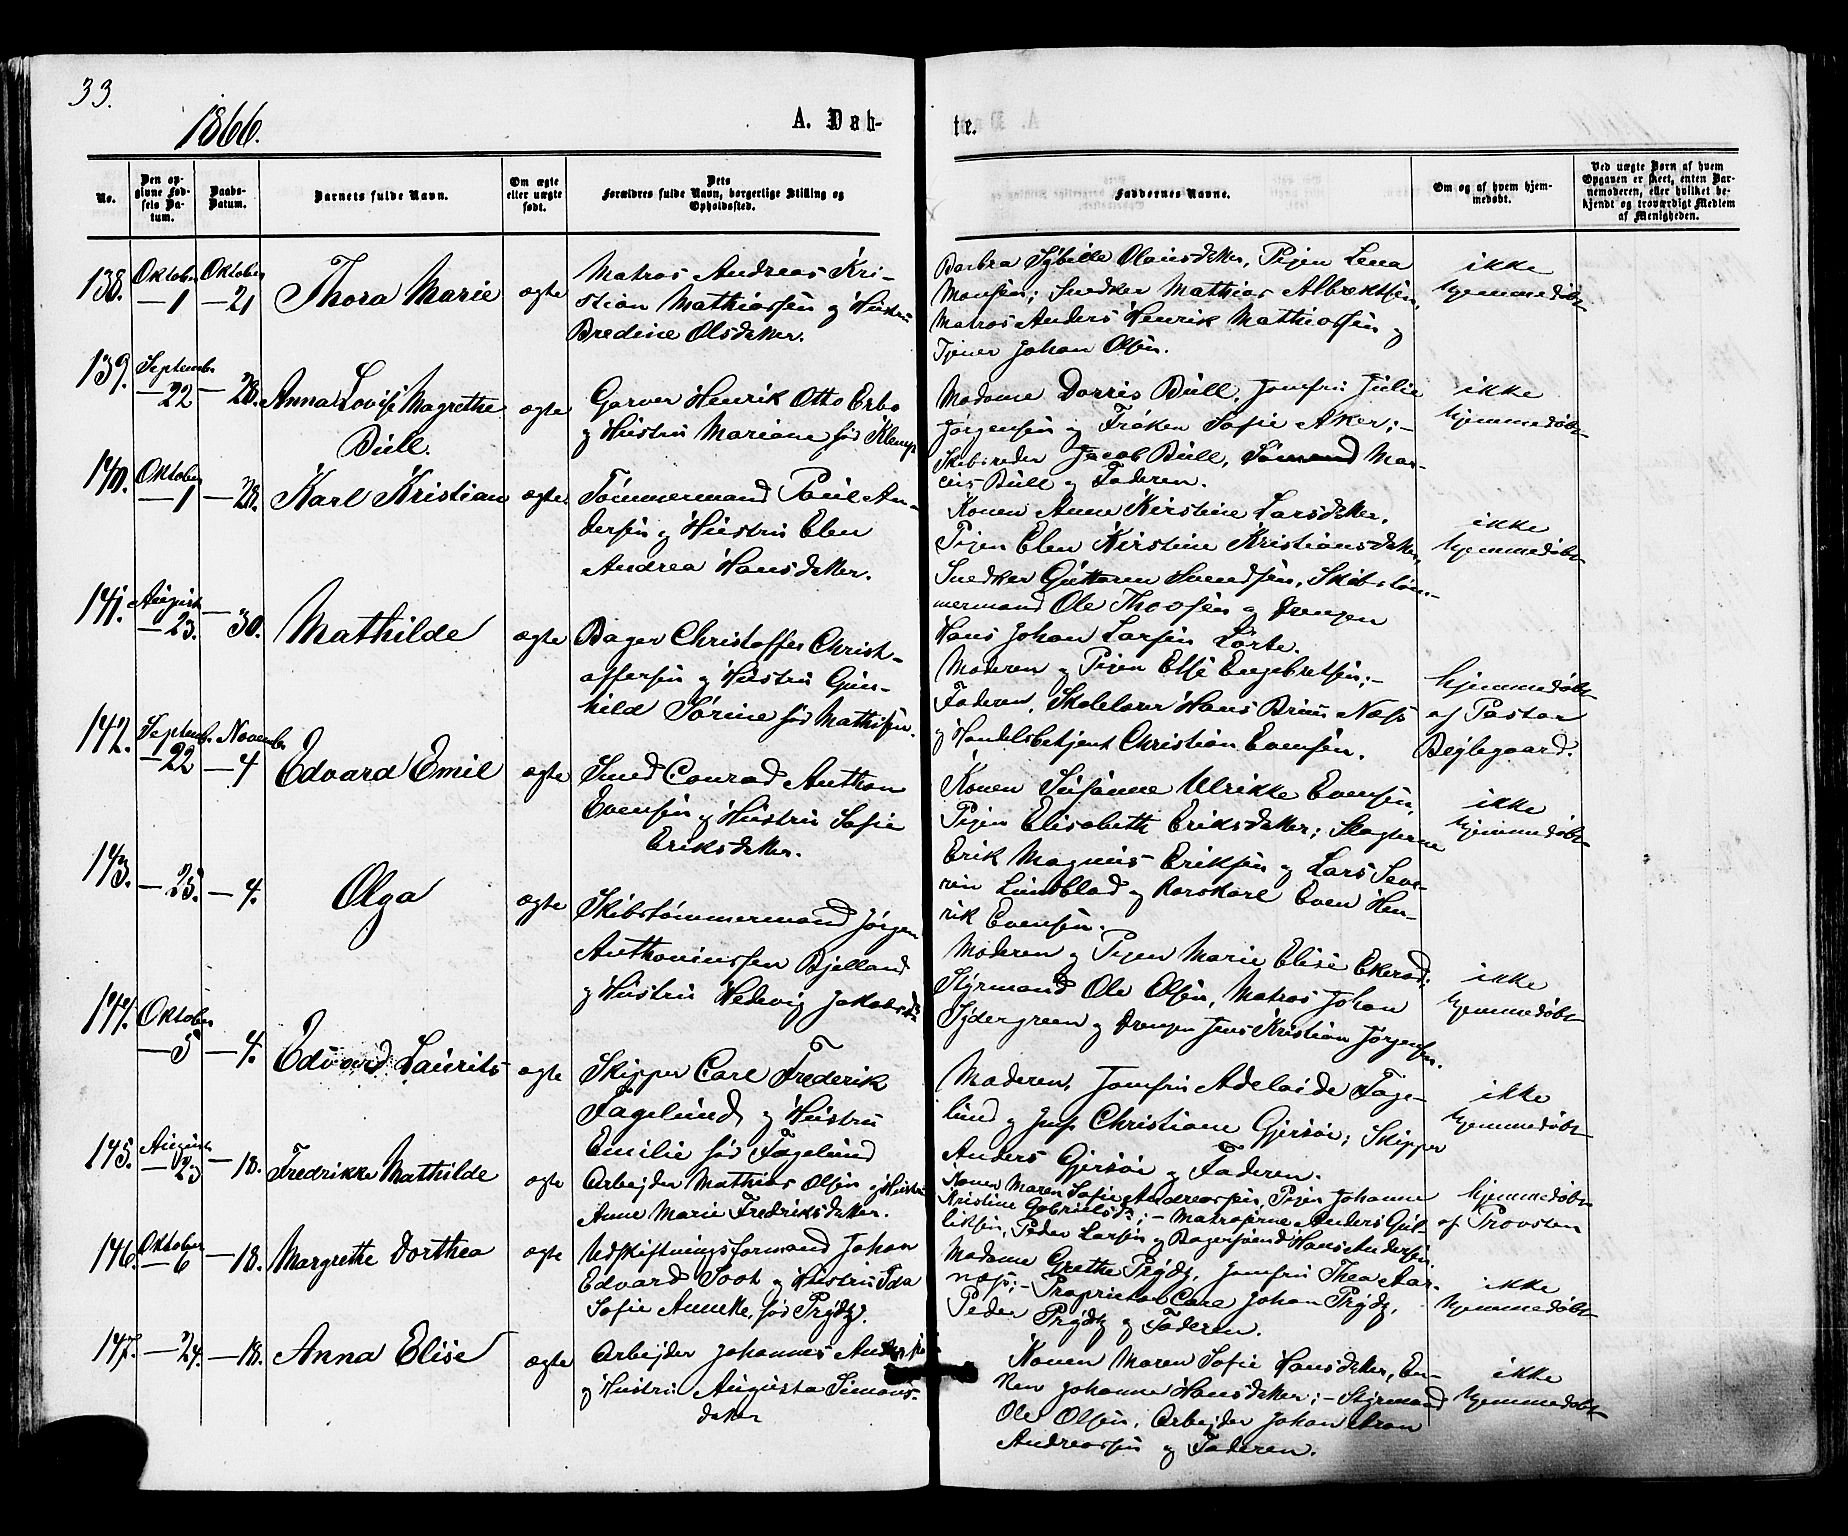 33.
1866.
A. Døbte.
No.
Den opgivne Fødsels Datum.
Daabs-Datum.
Barnets fulde Navn.
Om ægte eller uægte født.
Dets Forældres fulde Navn, borgerlige Stilling og Opholdssted.
Faddernes Navne.
Om og af hvem hjemmedøbt.
Ved uægte Børn af hvem Opgaven er skeet, enten Barnemoderen, eller hvilket bekjendt og troværdigt Medlem af Menigheden.
138. Oktober 1 Oktober 21 Thora Marie ægte
Matros Andreas Kri-
stian Mathiassen og Hustru
Bredine Olsdatter.
Barbra Sybille Olausdatter, Pigen Lena
Monsen; Snedker Mathias Albrektsen,
Matros Anders Henrik Mathiassen og
Tjener Johan Olsen.
ikke
hjemmedøbt
139. September 22 28. Anna Lovise Magrethe
Bull. ægte
Garver Henrik Otto Erbo
og Hustru Mariane fød Klemp
Madame Dorris Bull, Jomfru Julie
Jørgensen og Frøken Sofie Aker;
Skibsreder Jacob Bull, Sømand Mar-
ius Bull og Faderen.
ikke
hjemmedøbt
140. Oktober 1 28. Karl Kristian ægte
Tømmermand Paul An-
dersen og Hustru Elen
Andrea Hansdatter.
Konen Anne Kirstine Larsdatter,
Pigen Elen Kirstine Kristiansdatter,
Snedker Guttorm Svendsen, Skibstøm-
mermand Ole Thovsen og Drengen
Hans Johan Larsen Lørte.
ikke
hjemmedøbt
141. August 23. 30. Mathilde ægte
Bager Christoffer Christ-
offersen og Hustru Gun-
hild Sørine fød Mathisen.
Moderen og Pigen Else Engebretsen;
Faderen, Skolelærer Hans Bruu Næss
og Handelsbetjent Christian Evensen.
hjemmedøbt
af Pastor
Bejlegaard.
142. September 22 November 4 Edvard Emil ægte
Smed Conrad Anthon
Evensen og Hustru Sofie
Eriksdatter.
Konen Susanne Ulrikke Evensen,
Pigen Elisabeth Eriksdatter; Slagterne
Erik Magnus Eriksen og Lars Seve-
rin Lundblad og Rorskarl Even Hen-
rik Evensen.
ikke
hjemmedøbt
143. 25. 4. Olga ægte
Skibstømmermand Jørgen
Anthoniussen Bjelland
og Hustru Hedevig Jakobsd.
Moderen og Pigen Marie Elise Ekerod;
Styrmand Ole Olsen, Matros Johan
Sydergreen og Drengen Jens Kristian Jørgensen.
ikke
hjemmedøbt
144. Oktober 5 4. Edvard Laurits ægte
Skipper Carl Frederik
Fagelund og Hustru
Emilie fød Fagelund
Moderen, Jomfru Adelaide Fage-
lund og Jmf. Christiane Gjersøe; Skipper
Anders Gjersøe og Faderen.
ikke
hjemmedøbt
145. August 23 18. Fredrikke Mathilde ægte
Arbejder Mathias Olsen og Hustru
Anne Marie Fredriksdatter.
Konen Maren Sofie Andreassen, Pigen Johanne
Kristine Gabrielsd.; Matroserne Anders Gul-
liksen, Peder Larsen og Bagersvend Hans Andersen
hjemmedøbt
af Provsten
146. Oktober 6 18. Margrethe Dorthea ægte
Udskiftningsformand Johan
Edvard Soot og Hustru Ida
Sofie Annette, fød Prydz.
Madame Grethe Prydz, Jomfru Thea Aar-
næs; Proprietær Carl Johan Prydz,
Peder Prydz og Faderen.
ikke
hjemmedøbt
147. 24. 18. Anna Elise ægte
Arbejder Johannes
og Hustru Augusta Simons-
datter
Konen Maren Sofie Hansdatter, En-
ken Johanne Hansdatter; Styrmand
Ole Olsen, Arbejder Johan Aron
Andreassen og Faderen.
ikke
hjemmedøbt